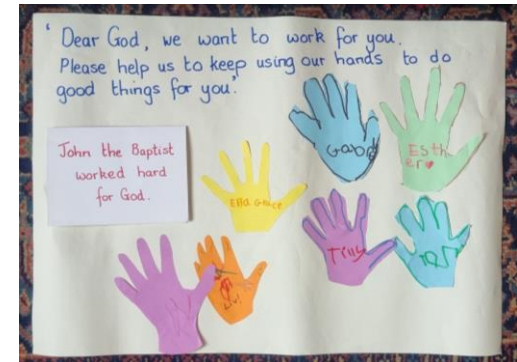 ‘Dear God, we want to work for you.
Please help us to keep using our hands to do
good things for you’.
John the Baptist
worked hard
for God.
Ella Grace
Esth
er
Tilly